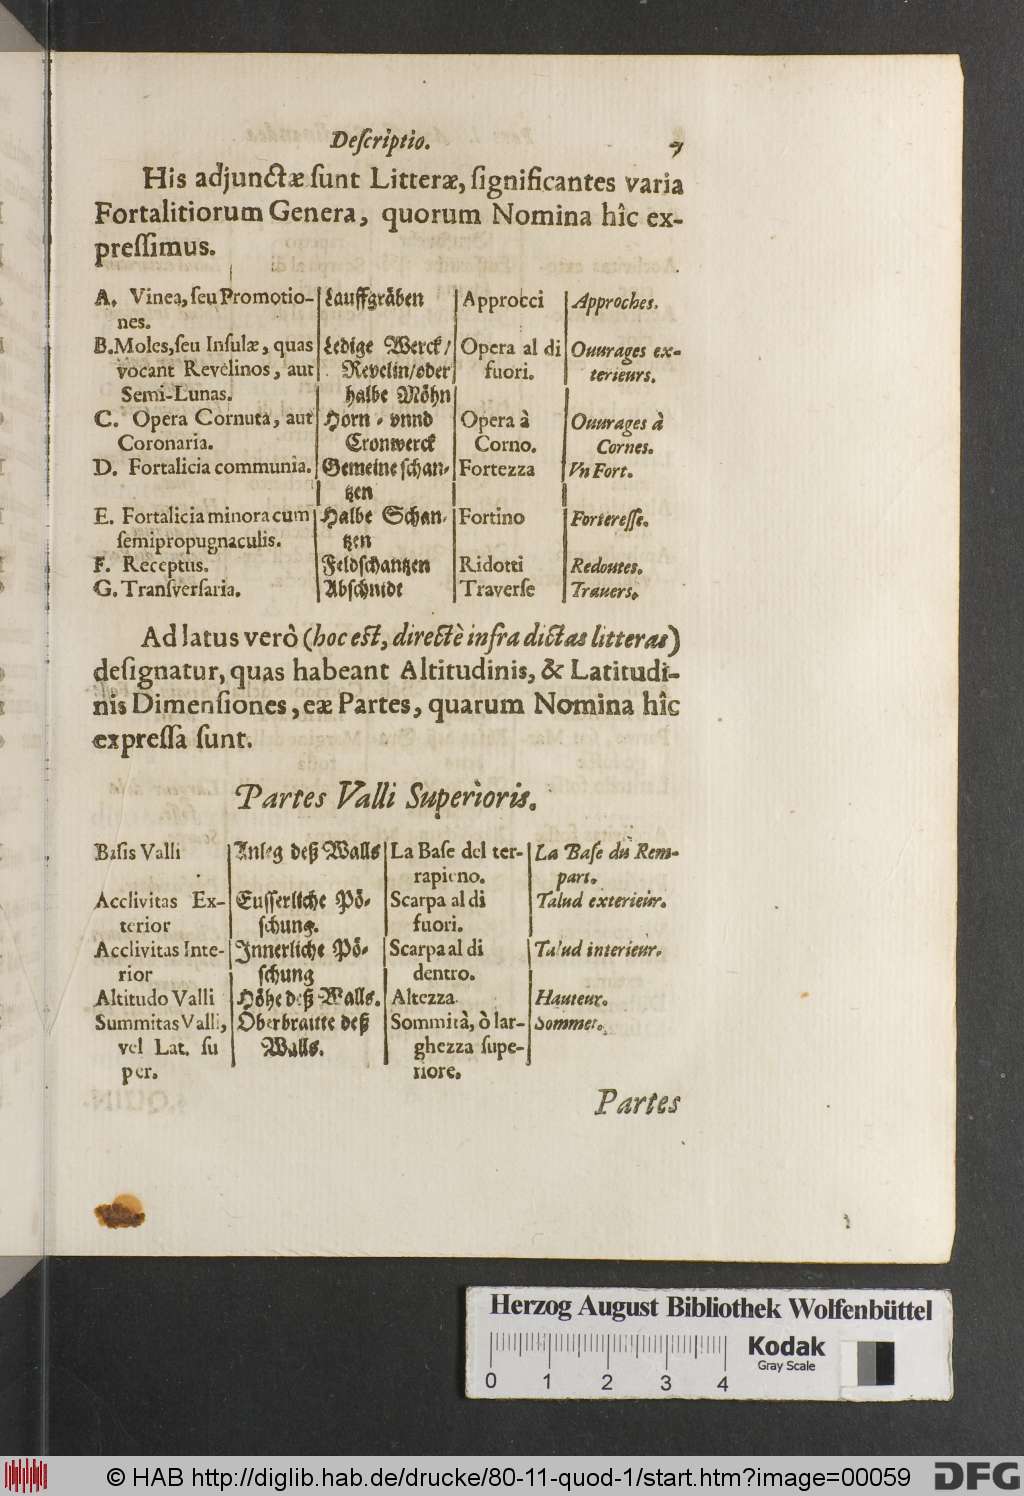 Deſcriptio. 7
His adjunctæ ſunt Litteræ, ſignificantes varia
Fortalitiorum Genera, quorum Nomina hîc ex-
preſſimus.
A. Vinea, ſeu Promotio- | Lauffgräben | Approcci | Approches.
nes.
B. Moles, ſeu Inſulæ, quas | Ledige Werck/ | Opera al di | Ouurages ex-
vocant Revelinos, aut | Revelin/oder | fuori. | terieurs.
Semi-Lunas. | halbe Möhn
C. Opera Cornuta, aut | Horn- vnnd | Opera à | Ouurages à
Coronaria. | Cronwerck | Corno. | Cornes.
D. Fortalicia communia. | Gemeine ſchan- | Fortezza | Vn Fort.
tzen
E. Fortalicia minora cum | Halbe Schan- | Fortino | Fortereſſe.
ſemipropugnaculis. | tzen
F. Receptus. | Feldſchantzen | Ridotti | Redoutes.
G. Tranſverſaria. | Abſchnidt | Traverſe | Trauers.
Ad latus verò (hoc est, directè infra dictas litteras)
deſignatur, quas habeant Altitudinis, & Latitudi-
nis Dimenſiones, eæ Partes, quarum Nomina hîc
expreſſa ſunt.
Partes Valli Superioris.
Baſis Valli | Anleg deß Walls | La Baſe del ter- | La Baſe du Rem-
rapieno. | part.
Acclivitas Ex- | Euſſerliche Pö- | Scarpa al di | Talud exterieur.
terior | ſchung. | fuori.
Acclivitas Inte- | Innerliche Pö- | Scarpa al di | Talud interieur.
rior | ſchung | dentro.
Altitudo Valli | Höhe deß Walls. | Altezza | Hauteur.
Summitas Valli, | Oberbraitte deß | Sommità, ò lar- | Sommet.
vel Lat. ſu | Walls. | ghezza ſupe-
per. | riore.
Partes
Herzog August Bibliothek Wolfenbüttel
0 1 2 3 4
Kodak
Gray Scale
© HAB http://diglib.hab.de/drucke/80-11-quod-1/start.htm?image=00059
DFG